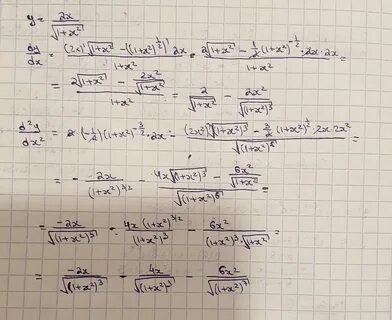 y = 2x / √(1+x²)
dy/dx = ((2x)'√(1+x²) - ((1+x²)^(1/2))' 2x) / (1+x²) = (2√(1+x²) - 1/2 (1+x²)^(-1/2) · 2x · 2x) / (1+x²) =
= (2√(1+x²) - 2x²/√(1+x²)) / (1+x²) = 2/√(1+x²) - 2x²/√((1+x²)³)
d²y/dx² = 2·(-1/2)(1+x²)^(-3/2) · 2x - ((2x²)'√((1+x²)³) - 3/2 (1+x²)^(1/2) · 2x · 2x²) / √((1+x²)⁶) =
= - 2x/(1+x²)^(3/2) - (4x√((1+x²)³) - 6x²/√(1+x²)) / √((1+x²)⁶) =
= -2x/√((1+x²)³) - 4x(1+x²)^(3/2)/(1+x²)³ - 6x²/((1+x²)³·√(1+x²)) =
= -2x/√((1+x²)³) - 4x/√((1+x²)³) - 6x²/√((1+x²)⁷)